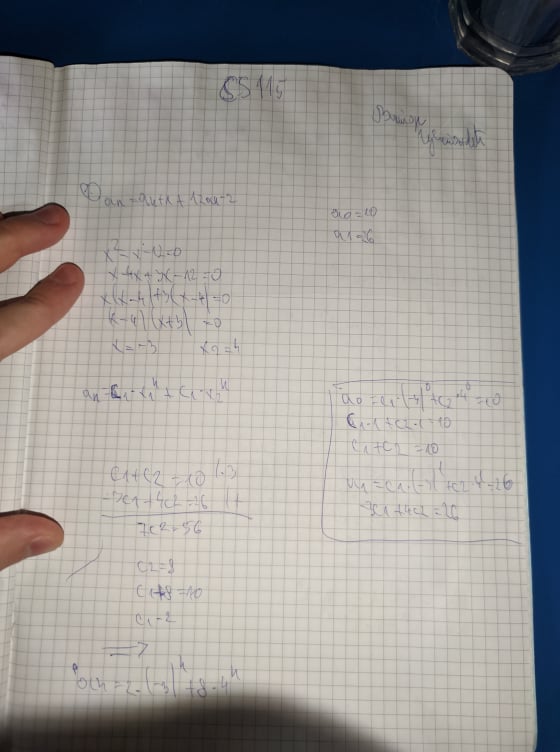 CS 115
1) an = an+1 + 12an-2
a0 = 10
a1 = 26
x² - x - 12 = 0
x - 4x + 3x - 12 = 0
x(x-4)+3(x-4) = 0
(x-4)(x+3) = 0
x = -3 x2 = 4
an = c1 · x1ⁿ + c1 · x2ⁿ
a0 = c1 · (-3)⁰ + c2 · 4⁰ = 10
c1 · 1 + c2 · 1 = 10
c1 + c2 = 10
a1 = c1 · (-3)¹ + c2 · 4¹ = 26
-3c1 + 4c2 = 26
c1 + c2 = 10 (·3)
-3c1 + 4c2 = 26 | +
7c2 = 56
c2 = 8
c1 + 8 = 10
c1 = 2
⟹
an = 2 · (-3)ⁿ + 8 · 4ⁿ